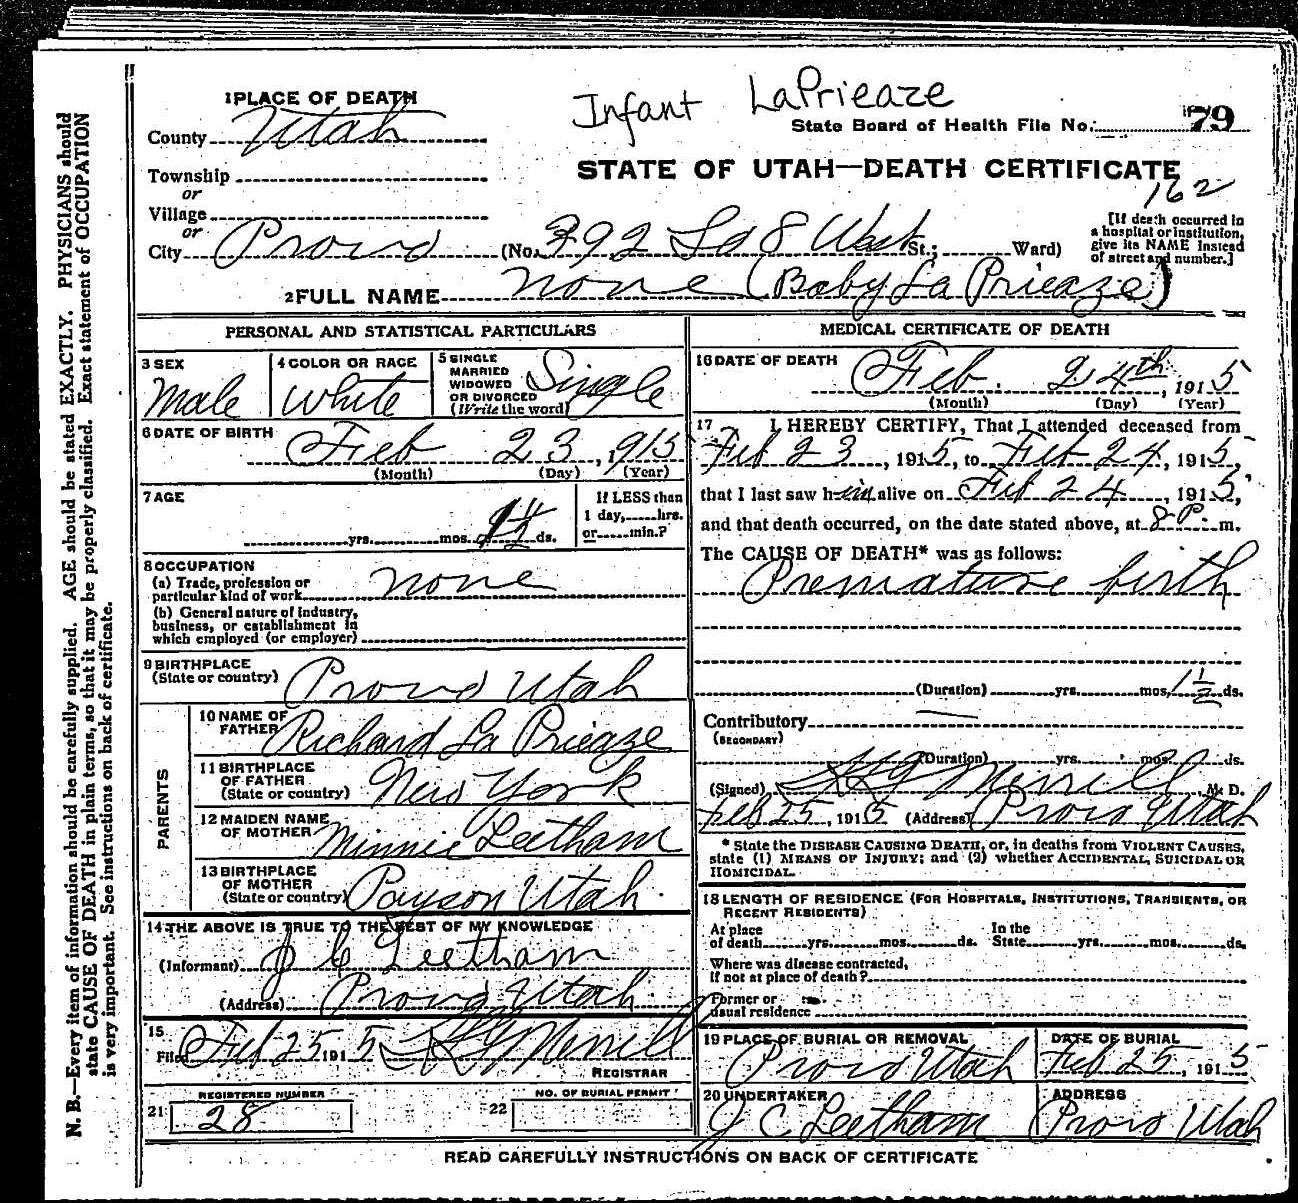 Infant LaPrieaze
1 PLACE OF DEATH
County Utah
State Board of Health File No. 79
Township
or
Village
or
STATE OF UTAH—DEATH CERTIFICATE
162
City Provo (No. 392 So 8 West St.; Ward)
[If death occurred in
a hospital or institution,
give its NAME instead
of street and number.]
2 FULL NAME none (Baby La Prieaze)
PERSONAL AND STATISTICAL PARTICULARS
3 SEX
Male
4 COLOR OR RACE
White
5 SINGLE
MARRIED
WIDOWED
OR DIVORCED
(Write the word)
Single
6 DATE OF BIRTH
Feb 23, 1915
(Month) (Day) (Year)
7 AGE
yrs. mos. ds.
If LESS than
1 day, hrs.
or min.?
8 OCCUPATION
(a) Trade, profession or
particular kind of work none
(b) General nature of industry,
business, or establishment in
which employed (or employer)
9 BIRTHPLACE
(State or country) Provo Utah
PARENTS
10 NAME OF
FATHER Richard La Prieaze
11 BIRTHPLACE
OF FATHER
(State or country) New York
12 MAIDEN NAME
OF MOTHER Minnie Leetham
13 BIRTHPLACE
OF MOTHER
(State or country) Payson Utah.
14 THE ABOVE IS TRUE TO THE BEST OF MY KNOWLEDGE
(Informant) J C Leetham
(Address) Provo Utah
15
Filed Feb 25 1915 Merrill
REGISTRAR
REGISTERED NUMBER
21 28
NO. OF BURIAL PERMIT
22
MEDICAL CERTIFICATE OF DEATH
16 DATE OF DEATH
Feb. 24th, 1915
(Month) (Day) (Year)
17 I HEREBY CERTIFY, That I attended deceased from
Feb 23, 1915, to Feb 24, 1915,
that I last saw him alive on Feb 24, 1915,
and that death occurred, on the date stated above, at 8 P. m.
The CAUSE OF DEATH* was as follows:
Premature birth
(Duration) yrs. mos. 1 1/2 ds.
Contributory
(SECONDARY)
(Duration) yrs. mos. ds.
(Signed) Merrill, M. D.
Feb 25, 1915 (Address) Provo Utah
* State the DISEASE CAUSING DEATH, or, in deaths from VIOLENT CAUSES,
state (1) MEANS OF INJURY; and (2) whether ACCIDENTAL, SUICIDAL OR
HOMICIDAL.
18 LENGTH OF RESIDENCE (FOR HOSPITALS, INSTITUTIONS, TRANSIENTS, OR
RECENT RESIDENTS)
At place
of death yrs. mos. ds.
In the
State yrs. mos. ds.
Where was disease contracted,
if not at place of death?
Former or
usual residence
19 PLACE OF BURIAL OR REMOVAL
Provo Utah
DATE OF BURIAL
Feb 25, 1915
20 UNDERTAKER
J C Leetham
ADDRESS
Provo Utah
READ CAREFULLY INSTRUCTIONS ON BACK OF CERTIFICATE
N. B.—Every item of information should be carefully supplied. AGE should be stated EXACTLY. PHYSICIANS should
state CAUSE OF DEATH in plain terms, so that it may be properly classified. Exact statement of OCCUPATION
is very important. See instructions on back of certificate.